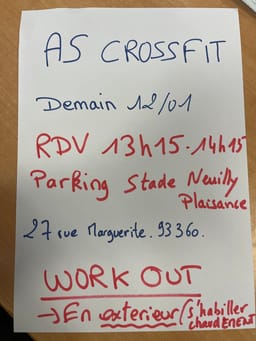 AS CROSSFIT
Demain 12/01
RDV 13h15-14h15
Parking Stade Neuilly
Plaisance
27 rue Marguerite. 93360.
WORK OUT
→ En exterieur (s'habiller
chaudEMENT